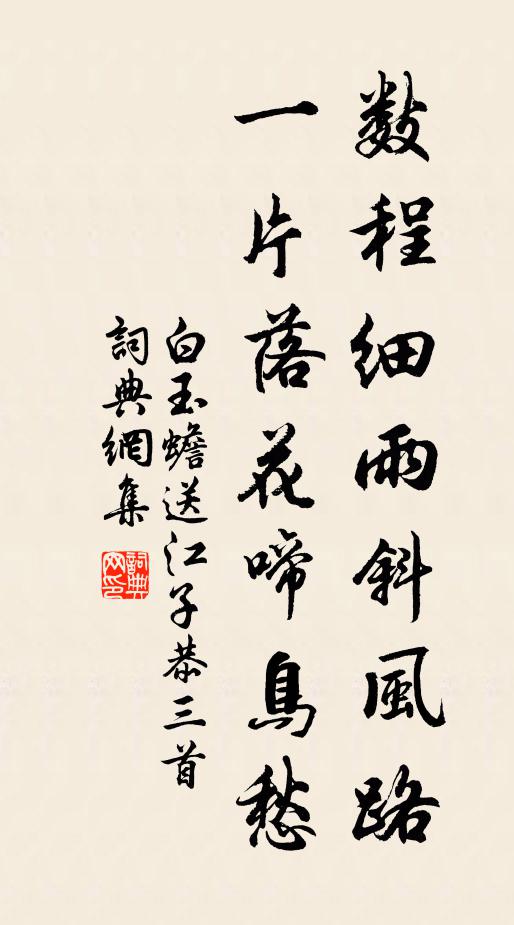 数程细雨斜風路
一片落花啼鳥愁
白玉蟾送江子恭三首
詞典網集
詞典网印